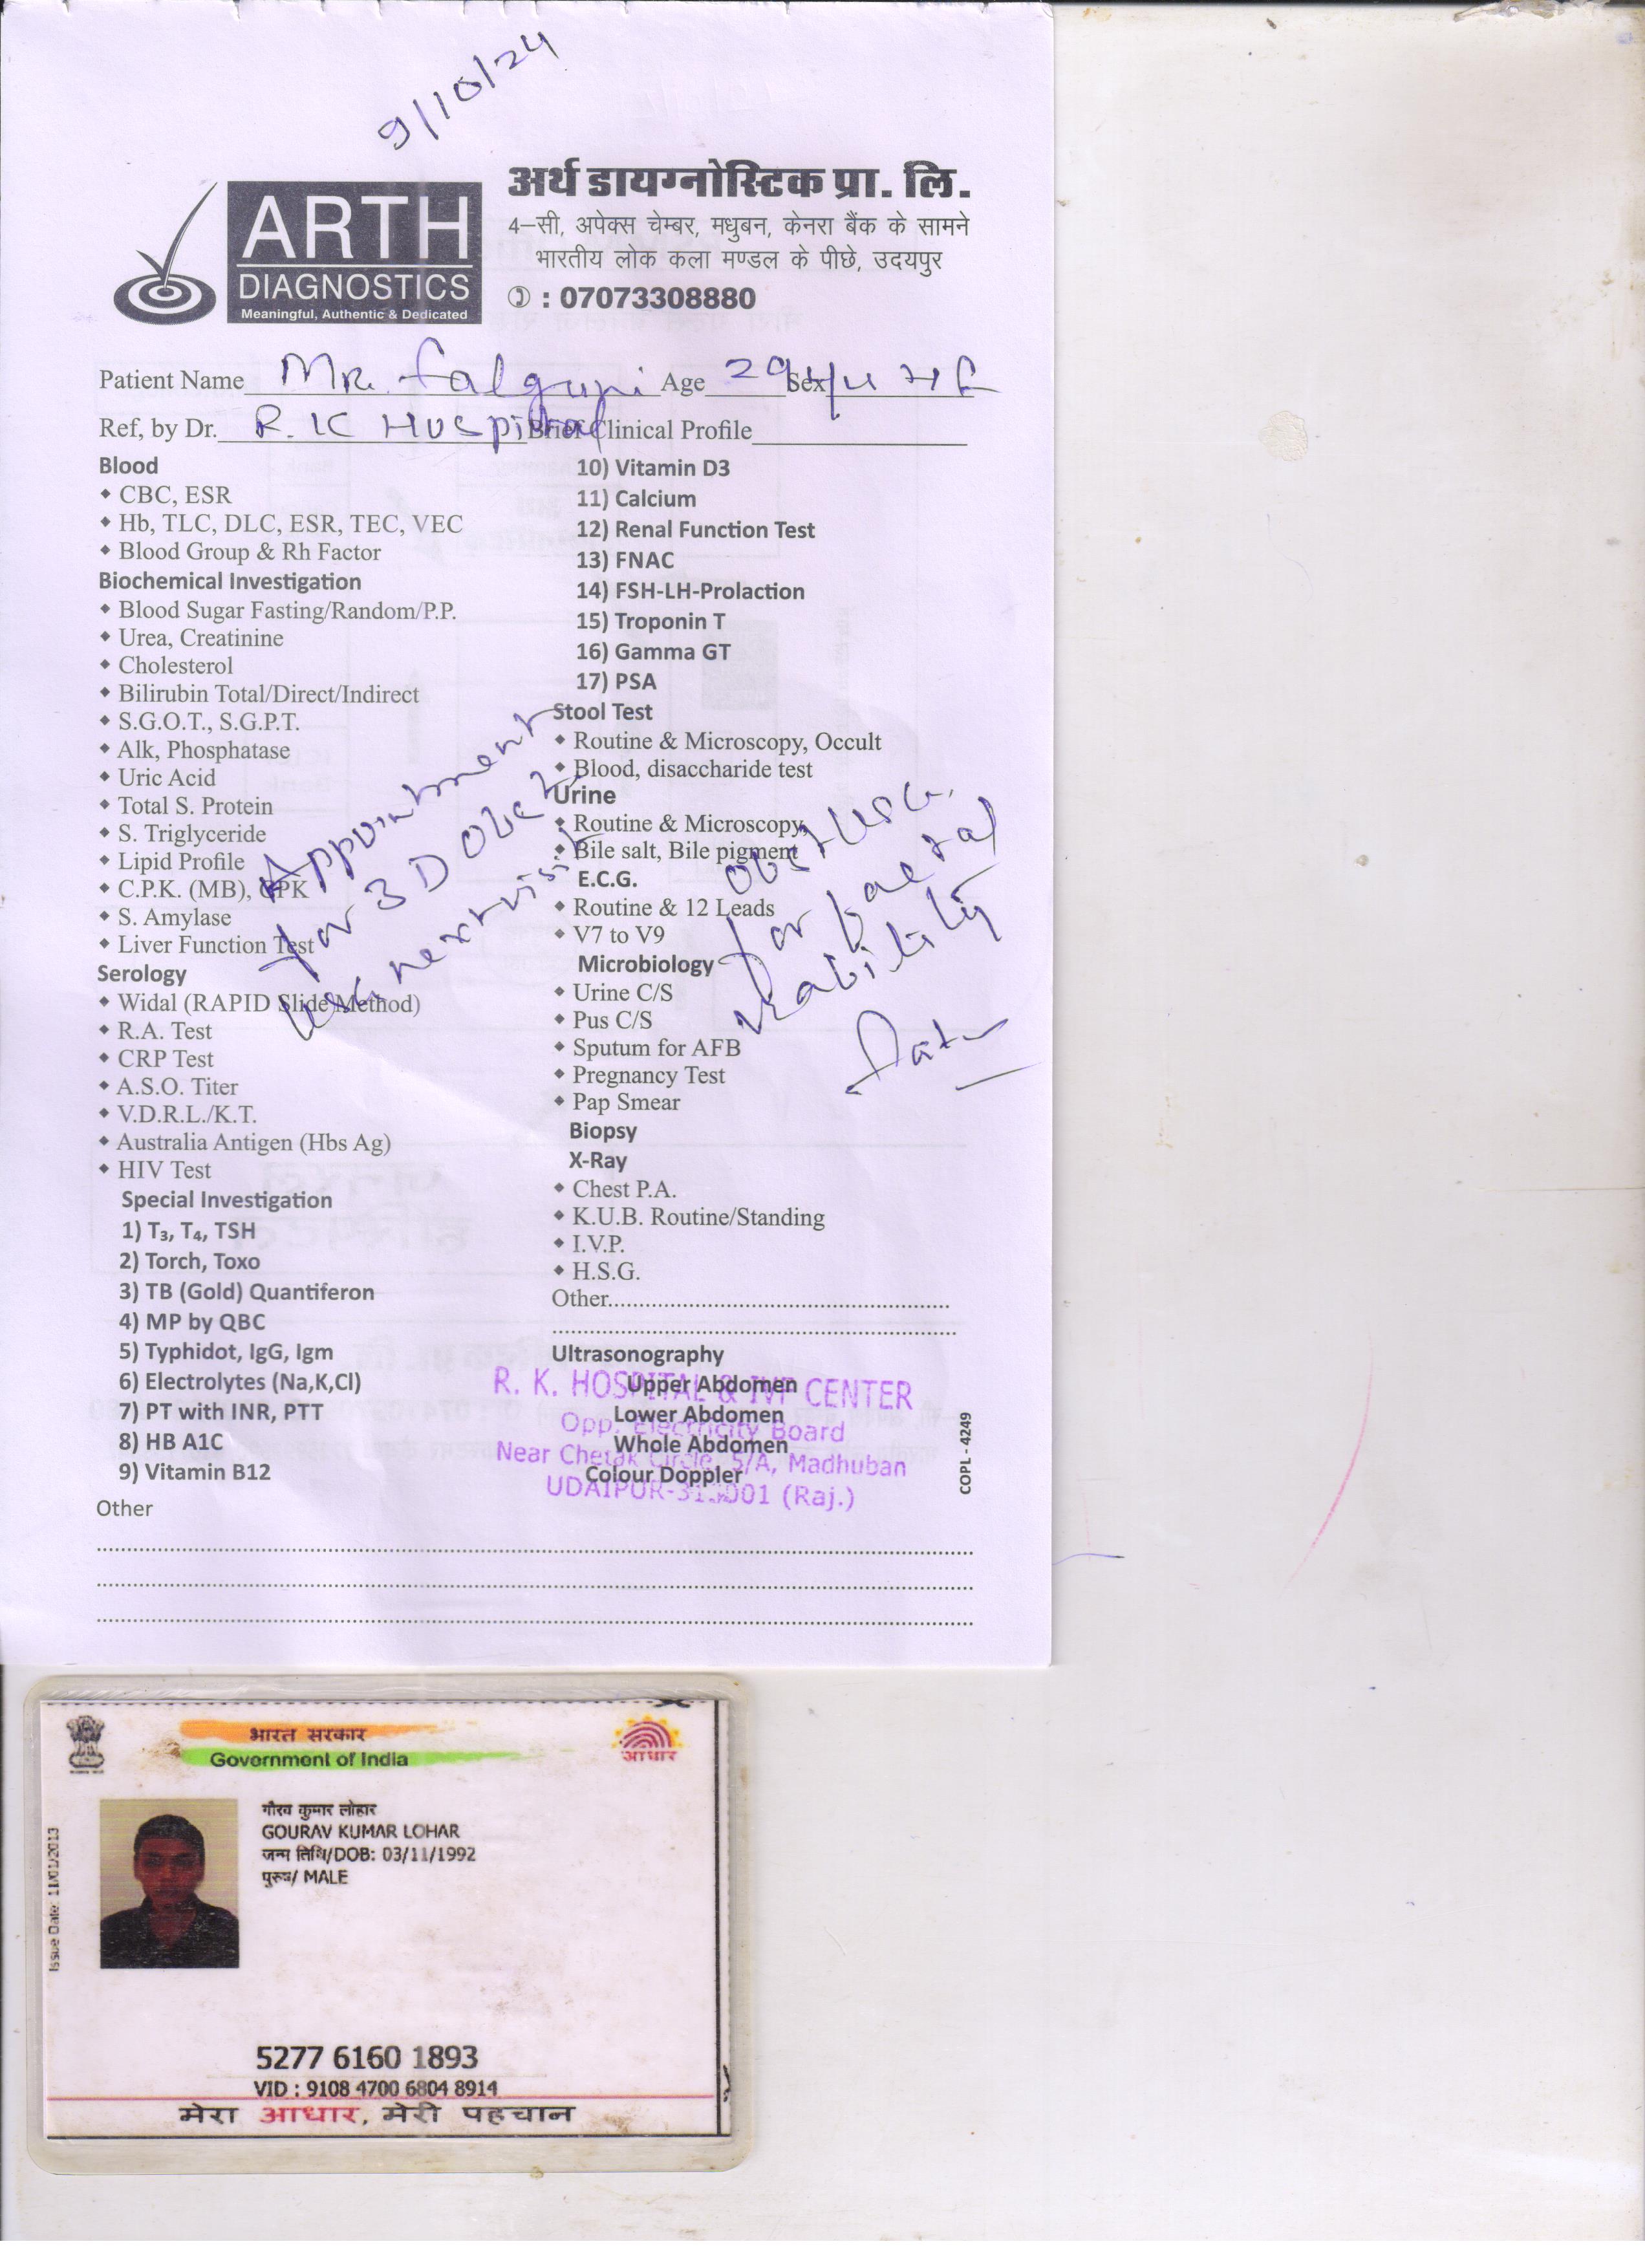 9/10/24
ARTH
DIAGNOSTICS
Meaningful, Authentic & Dedicated
अर्थ डायग्नोस्टिक प्रा. लि.
4–सी, अपेक्स चेम्बर, मधुबन, केनरा बैंक के सामने
भारतीय लोक कला मण्डल के पीछे, उदयपुर
: 07073308880
Patient Name Mr. Falguni Age 29 Sex
Ref, by Dr. R. K Hospital Brief Clinical Profile
Blood
CBC, ESR
Hb, TLC, DLC, ESR, TEC, VEC
Blood Group & Rh Factor
Biochemical Investigation
Blood Sugar Fasting/Random/P.P.
Urea, Creatinine
Cholesterol
Bilirubin Total/Direct/Indirect
S.G.O.T., S.G.P.T.
Alk, Phosphatase
Uric Acid
Total S. Protein
S. Triglyceride
Lipid Profile
C.P.K. (MB), CPK
S. Amylase
Liver Function Test
Serology
Widal (RAPID Slide Method)
R.A. Test
CRP Test
A.S.O. Titer
V.D.R.L./K.T.
Australia Antigen (Hbs Ag)
HIV Test
Special Investigation
1) T₃, T₄, TSH
2) Torch, Toxo
3) TB (Gold) Quantiferon
4) MP by QBC
5) Typhidot, IgG, Igm
6) Electrolytes (Na,K,Cl)
7) PT with INR, PTT
8) HB A1C
9) Vitamin B12
Other
Appointment
for 3D Obst
USG next visit
10) Vitamin D3
11) Calcium
12) Renal Function Test
13) FNAC
14) FSH-LH-Prolaction
15) Troponin T
16) Gamma GT
17) PSA
Stool Test
Routine & Microscopy, Occult
Blood, disaccharide test
Urine
Routine & Microscopy,
Bile salt, Bile pigment
E.C.G.
Routine & 12 Leads
V7 to V9
Microbiology
Urine C/S
Pus C/S
Sputum for AFB
Pregnancy Test
Pap Smear
Biopsy
X-Ray
Chest P.A.
K.U.B. Routine/Standing
I.V.P.
H.S.G.
Other
Obst USG
for foetal
viability
Ultrasonography
Upper Abdomen
Lower Abdomen
Whole Abdomen
Colour Doppler
R. K. HOSPITAL & IVF CENTER
Opp. Electricity Board
Near Chetak Circle, 5/A, Madhuban
UDAIPUR-313001 (Raj.)
COPL - 4249
भारत सरकार
Government of India
आधार
Issue Date: 11/01/2013
गौरव कुमार लोहार
GOURAV KUMAR LOHAR
जन्म तिथि/DOB: 03/11/1992
पुरुष/ MALE
5277 6160 1893
VID : 9108 4700 6804 8914
मेरा आधार, मेरी पहचान